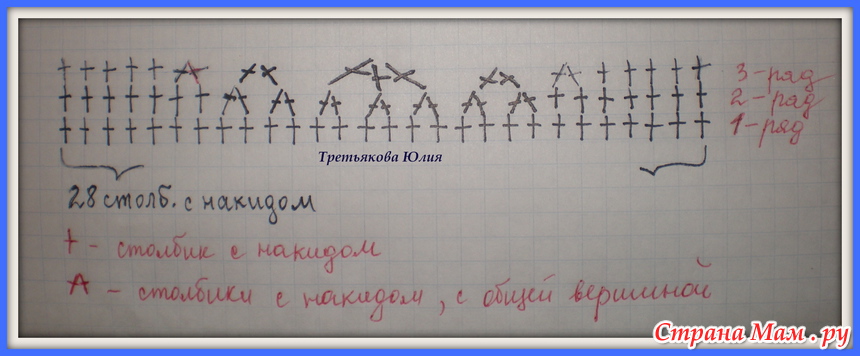 3-ряд
2-ряд
1-ряд
Третьякова Юлия
28 столб. с накидом
† - столбик с накидом
А - столбики с накидом, с общей вершиной
Страна Мам.ру